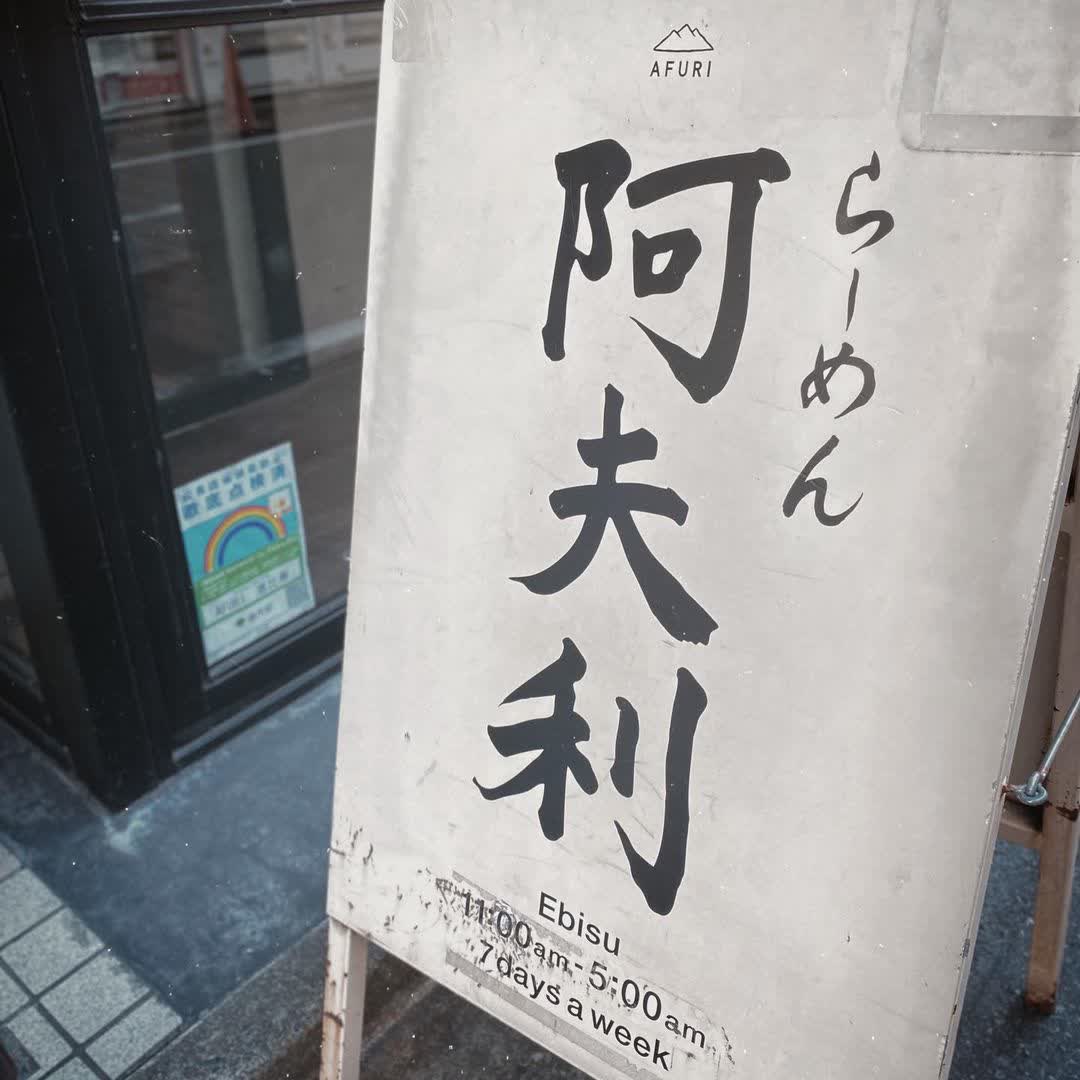 AFURI
らーめん
阿夫利
Ebisu
11:00am - 5:00am
7days a week
徹底点検済